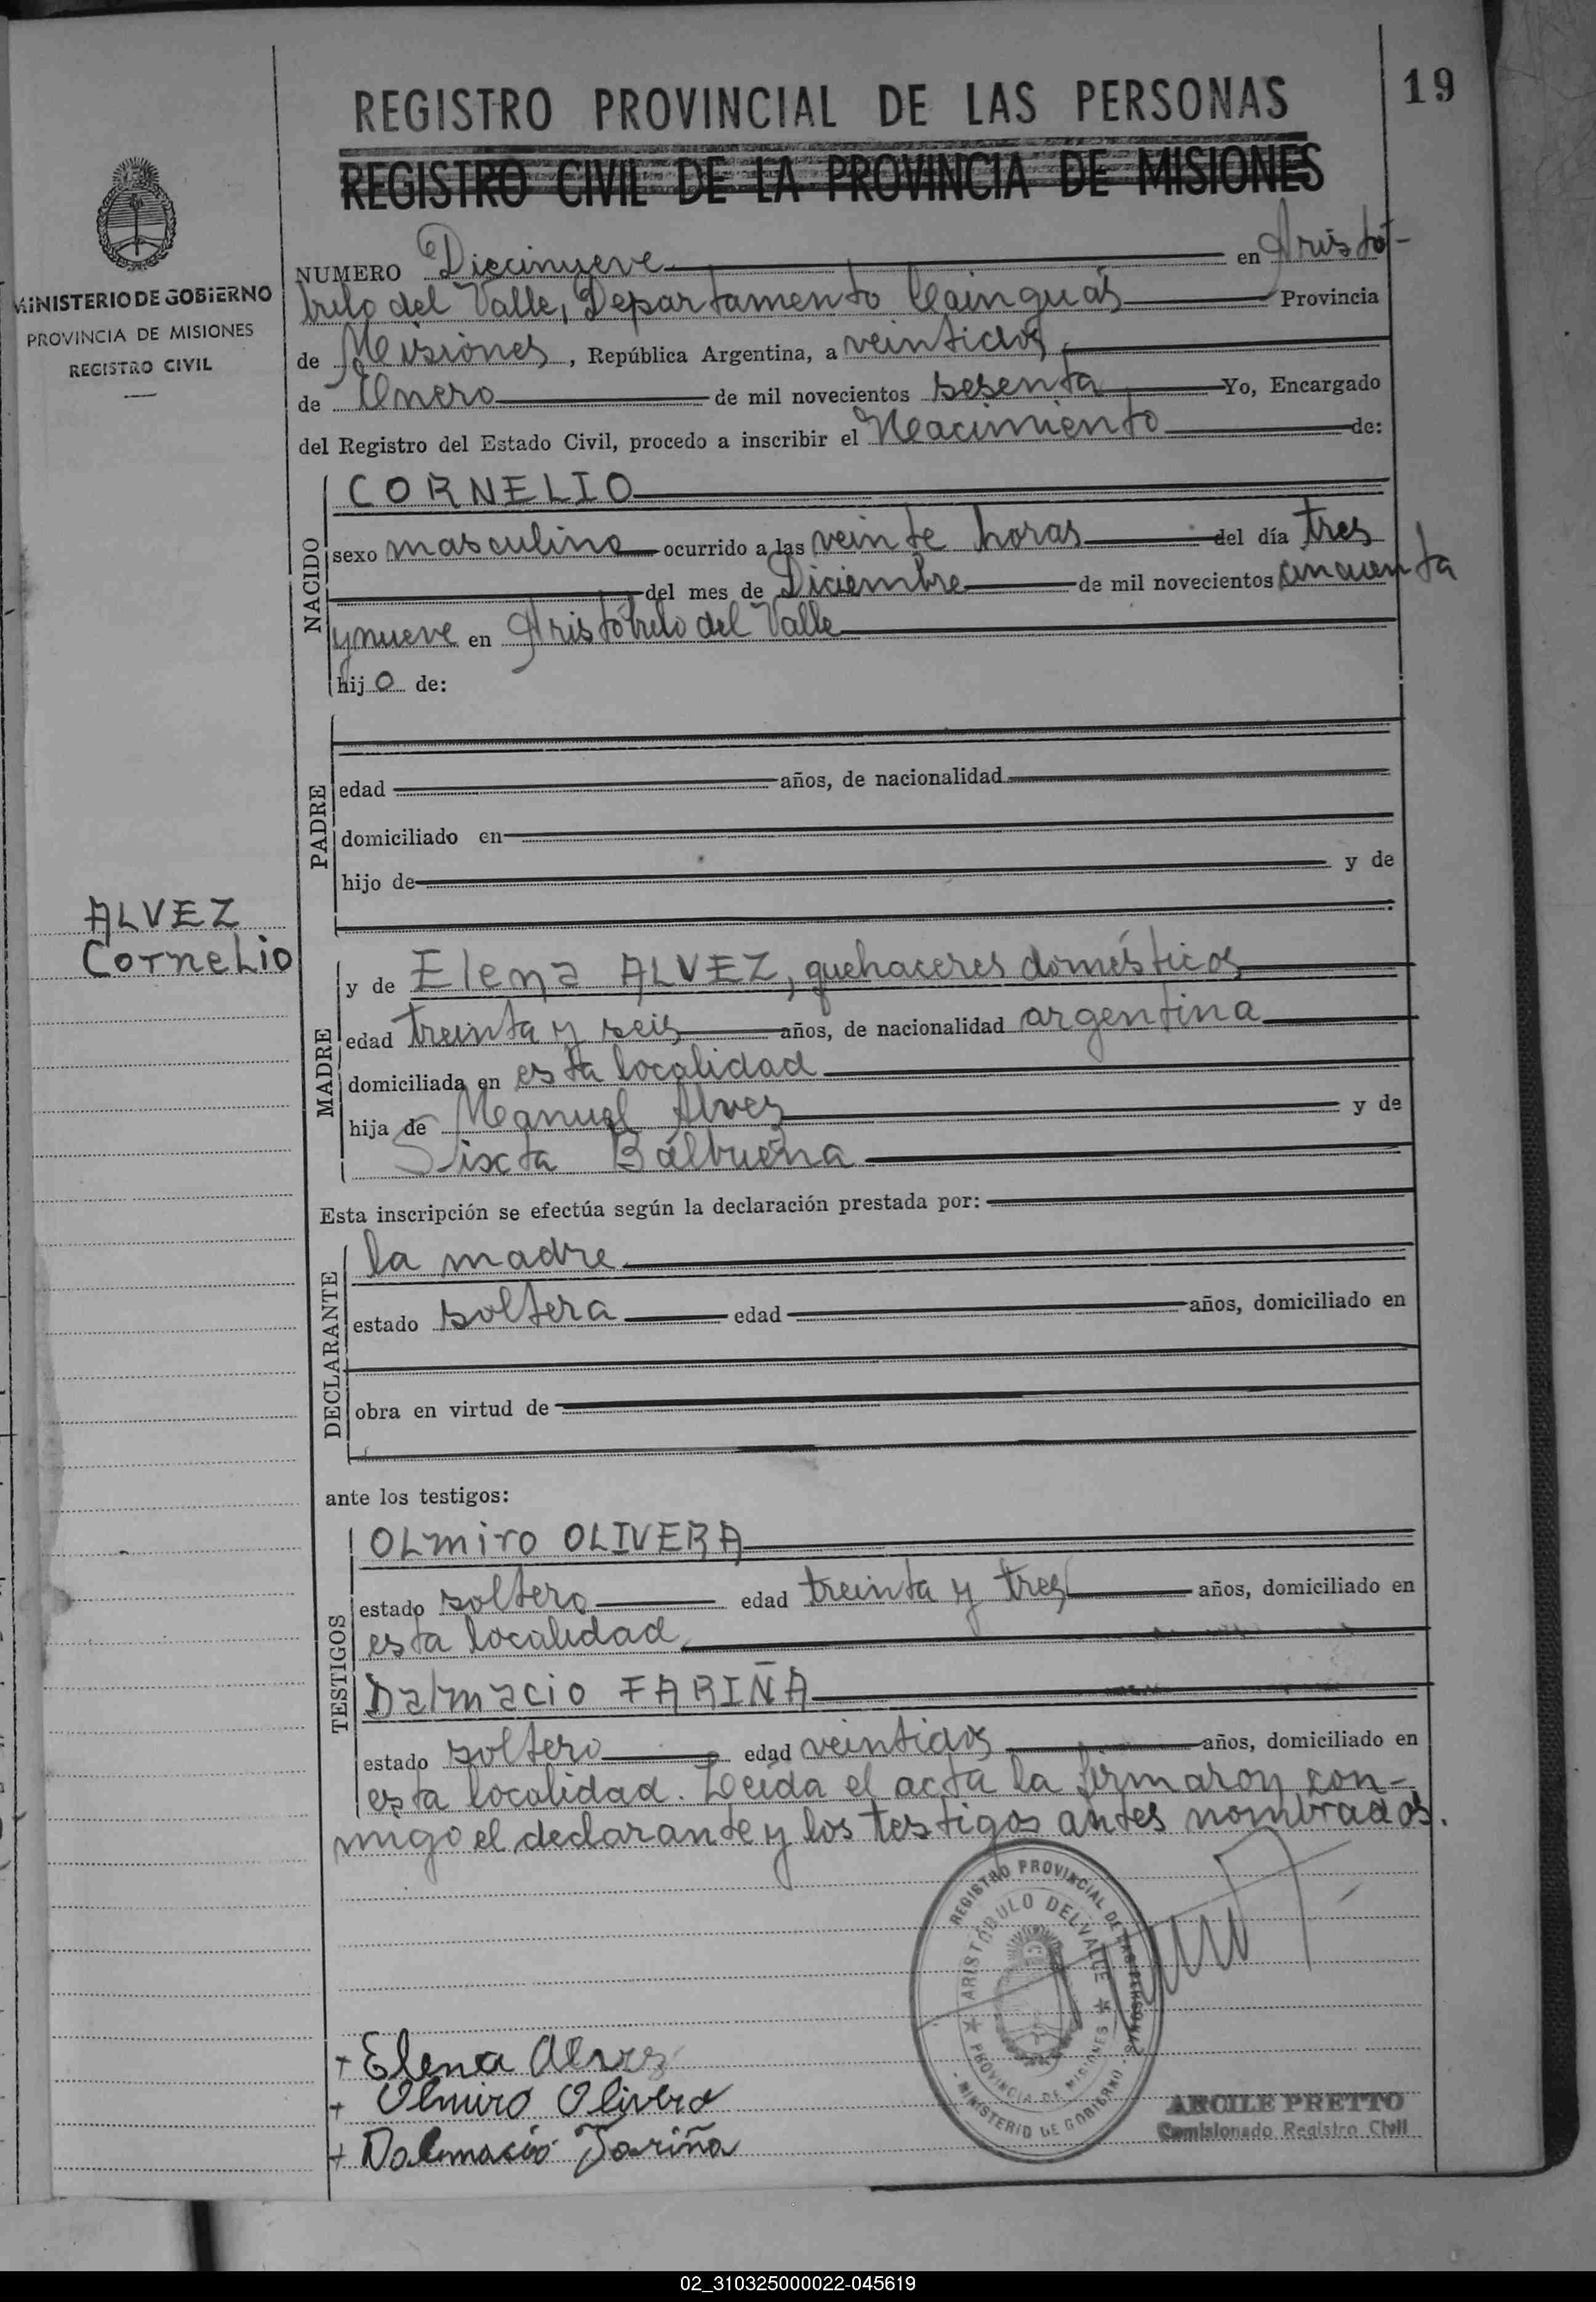 19
REGISTRO PROVINCIAL DE LAS PERSONAS
REGISTRO CIVIL DE LA PROVINCIA DE MISIONES
MINISTERIO DE GOBIERNO
PROVINCIA DE MISIONES
REGISTRO CIVIL
NUMERO Diecinueve en Aristó-
bulo del Valle, Departamento Cainguás Provincia
de Misiones, República Argentina, a veintidos
de Enero de mil novecientos sesenta Yo, Encargado
del Registro del Estado Civil, procedo a inscribir el Nacimiento de:
NACIDO
CORNELIO
sexo masculino ocurrido a las veinte horas del día tres
del mes de Diciembre de mil novecientos cincuenta
y nueve en Aristóbulo del Valle
hijo de:
PADRE
edad años, de nacionalidad
domiciliado en
hijo de y de
ALVEZ
Cornelio
MADRE
y de Elena ALVEZ, quehaceres domésticos
edad treinta y seis años, de nacionalidad argentina
domiciliada en esta localidad
hija de Manuel Alvez y de
Sixta Balbuena
Esta inscripción se efectúa según la declaración prestada por:
DECLARANTE
la madre
estado soltera edad años, domiciliado en
obra en virtud de
ante los testigos:
TESTIGOS
OLmiro OLIVERA
estado soltero edad treinta y tres años, domiciliado en
esta localidad
Dalmacio FARIÑA
estado soltero edad veintidos años, domiciliado en
esta localidad. Leída el acta la firmaron con-
migo el declarante y los testigos antes nombrados.
REGISTRO PROVINCIAL DE LAS PERSONAS
ARISTÓBULO DEL VALLE
PROVINCIA DE MISIONES
MINISTERIO DE GOBIERNO
+ Elena Alvez
+ Olmiro Olivera
+ Dalmacio Fariña
ARCILE PRETTO
Comisionado Registro Civil
02_310325000022-045619